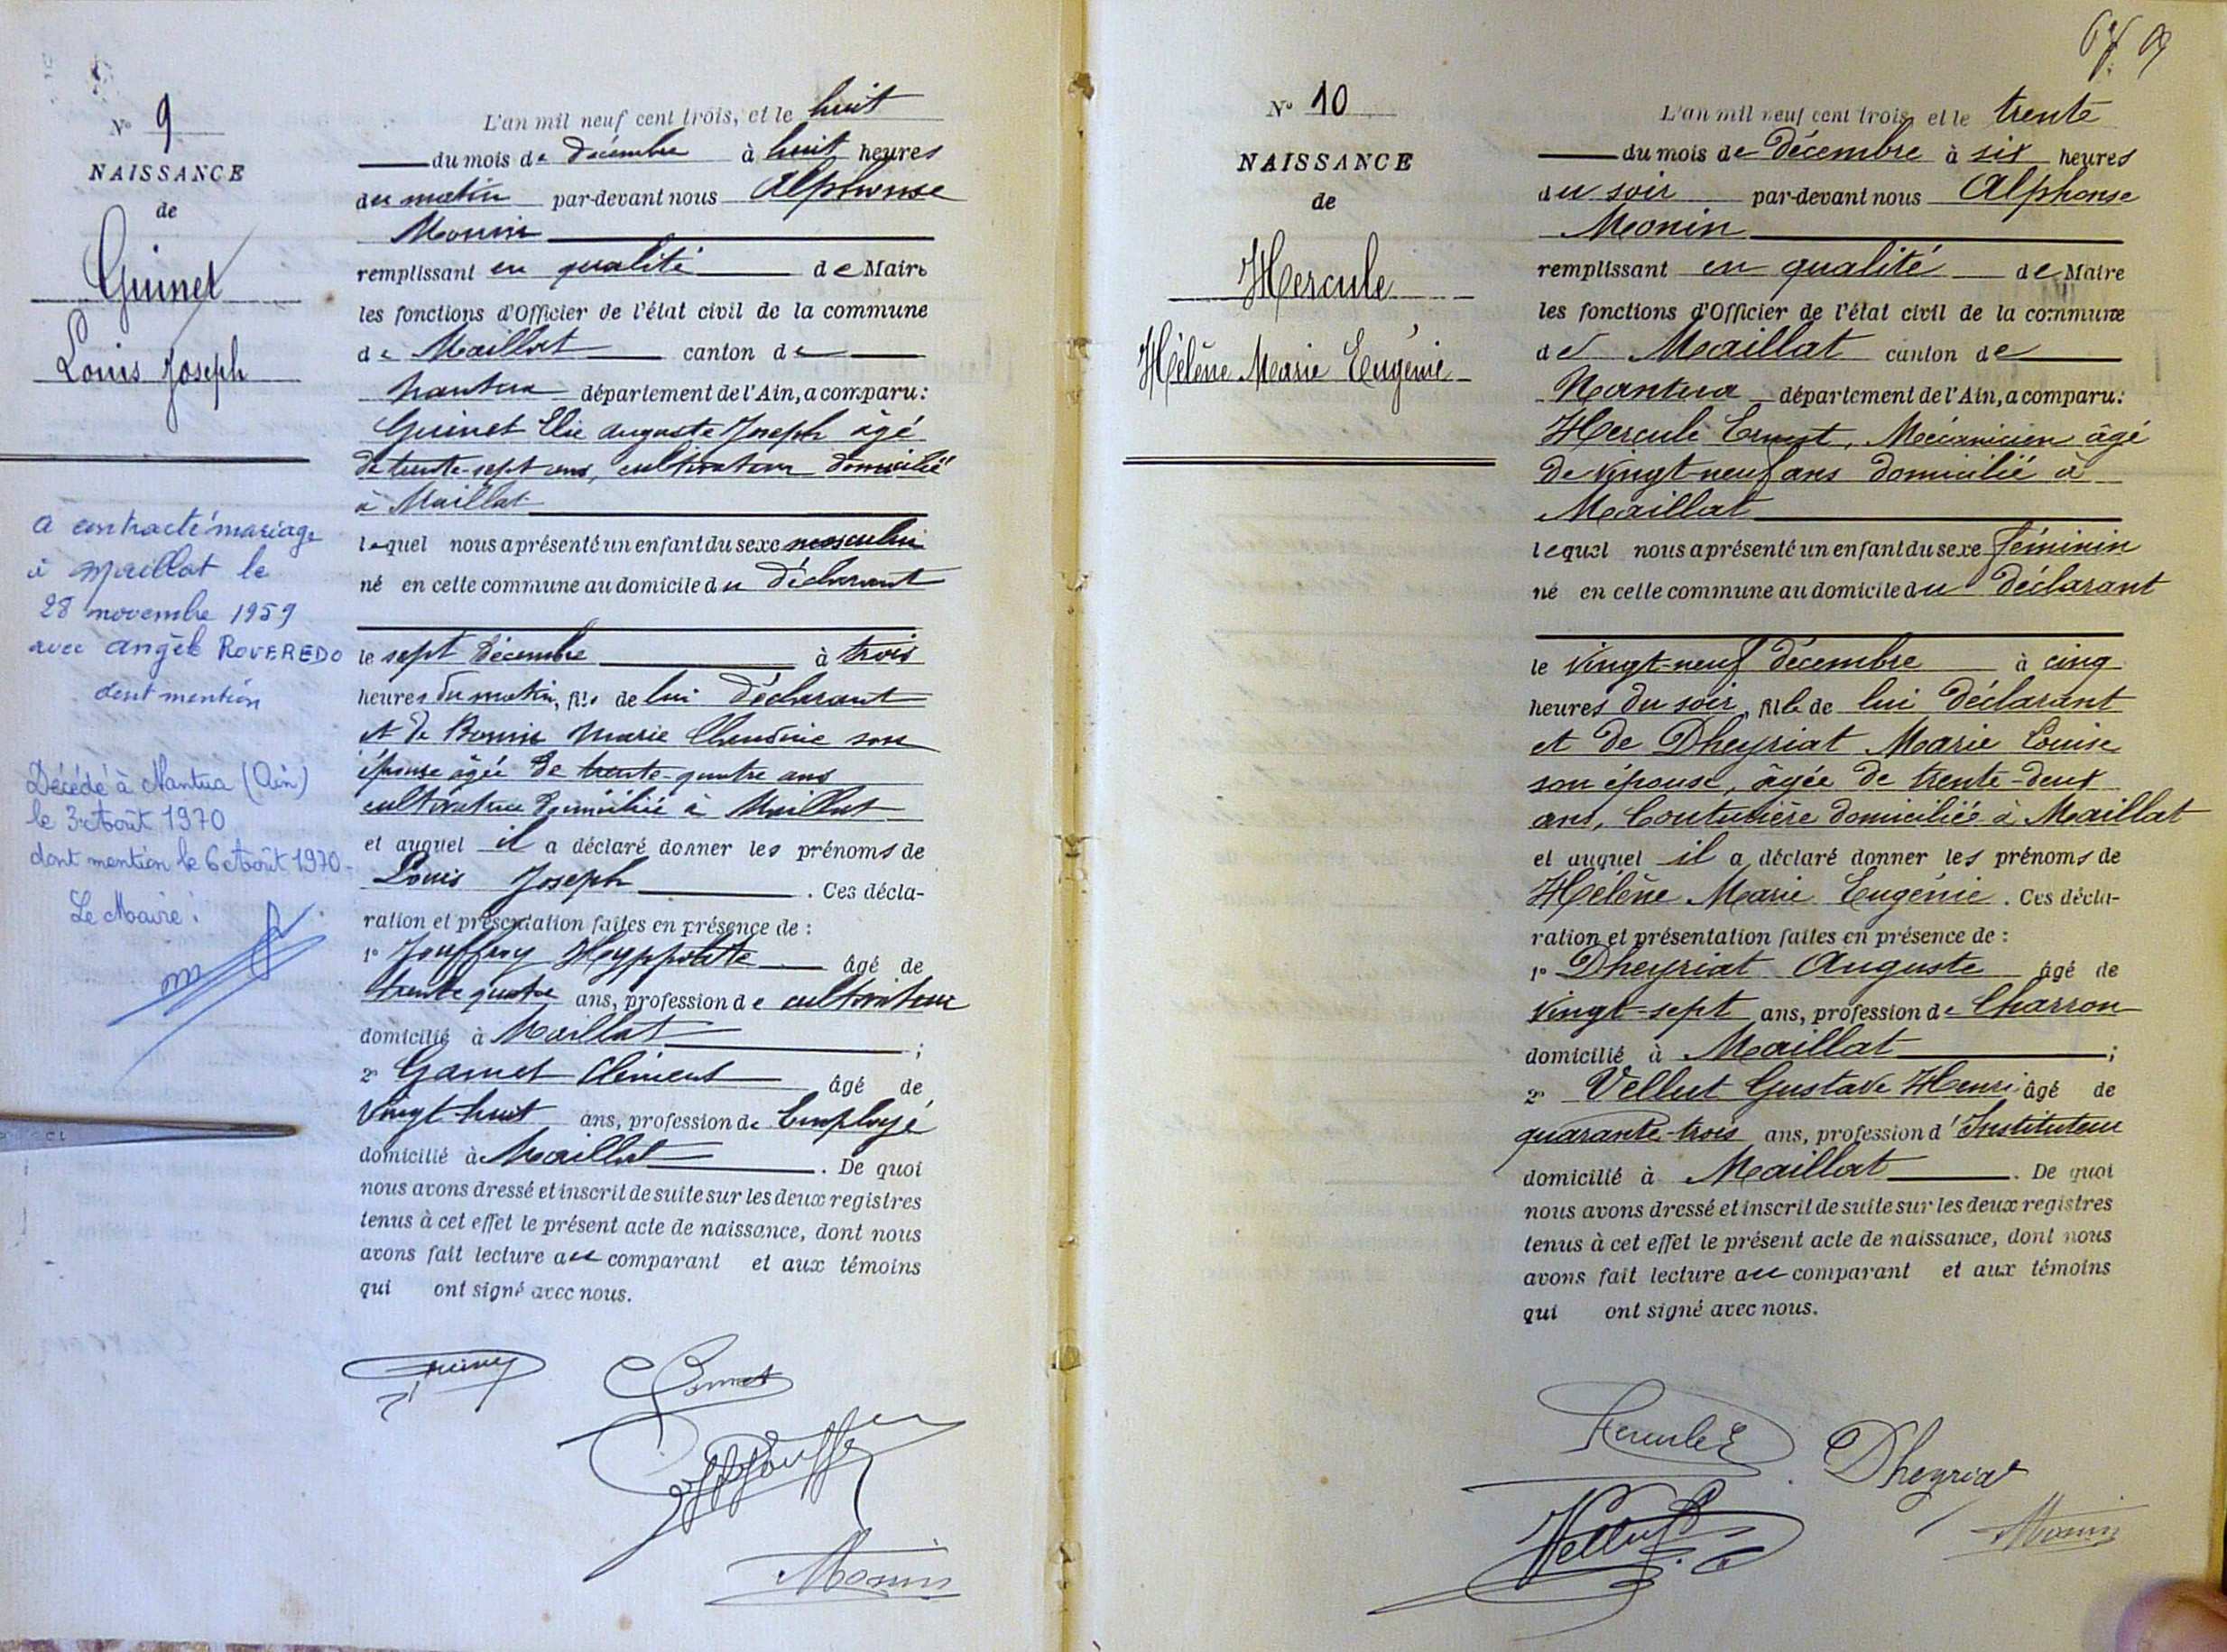 N° 9
NAISSANCE
de
Guinet
Louis Joseph
a contracté mariage
à Maillat le
28 novembre 1959
avec Angèle ROVEREDO
dont mention
Décédé à Nantua (Ain)
le 3 Août 1970
dont mention le 6 Août 1970.
Le Maire :
L'an mil neuf cent trois, et le huit
du mois de décembre à huit heures
du matin par-devant nous Alphonse
Monin
remplissant en qualité de Maire
les fonctions d'Officier de l'état civil de la commune
de Maillat canton de
Nantua département de l'Ain, a comparu :
Guinet Elie Auguste Joseph âgé
de trente-sept ans, cultivateur domicilié
à Maillat
lequel nous a présenté un enfant du sexe masculin
né en cette commune au domicile du déclarant
le sept décembre à trois
heures du matin, fils de lui déclarant
et de Marie Claudine son
épouse âgée de trente-quatre ans
cultivatrice domiciliée à Maillat
et auquel il a déclaré donner les prénoms de
Louis Joseph . Ces décla-
ration et présentation faites en présence de :
1° Jouffroy Hyppolite âgé de
trente quatre ans, profession de cultivateur
domicilié à Maillat ;
2° Garnet Clément âgé de
vingt huit ans, profession de Employé
domicilié à Maillat . De quoi
nous avons dressé et inscrit de suite sur les deux registres
tenus à cet effet le présent acte de naissance, dont nous
avons fait lecture au comparant et aux témoins
qui ont signé avec nous.
Monin
N° 10
NAISSANCE
de
Hercule
Hélène Marie Eugénie
L'an mil neuf cent trois, et le trente
du mois de décembre à six heures
du soir par-devant nous Alphonse
Monin
remplissant en qualité de Maire
les fonctions d'Officier de l'état civil de la commune
de Maillat canton de
Nantua département de l'Ain, a comparu :
Hercule Ernest, Mécanicien âgé
de vingt-neuf ans domicilié à
Maillat
lequel nous a présenté un enfant du sexe féminin
né en cette commune au domicile du déclarant
le vingt-neuf décembre à cinq
heures du soir, fille de lui déclarant
et de Dheyriat Marie Louise
son épouse, âgée de trente-deux
ans, Couturière domiciliée à Maillat
et auquel il a déclaré donner les prénoms de
Hélène Marie Eugénie . Ces décla-
ration et présentation faites en présence de :
1° Dheyriat Auguste âgé de
vingt-sept ans, profession de Charron
domicilié à Maillat ;
2° Vellut Gustave Henri âgé de
quarante-trois ans, profession d'Instituteur
domicilié à Maillat . De quoi
nous avons dressé et inscrit de suite sur les deux registres
tenus à cet effet le présent acte de naissance, dont nous
avons fait lecture au comparant et aux témoins
qui ont signé avec nous.
Hercule E
Dheyriat
Vellut
Monin